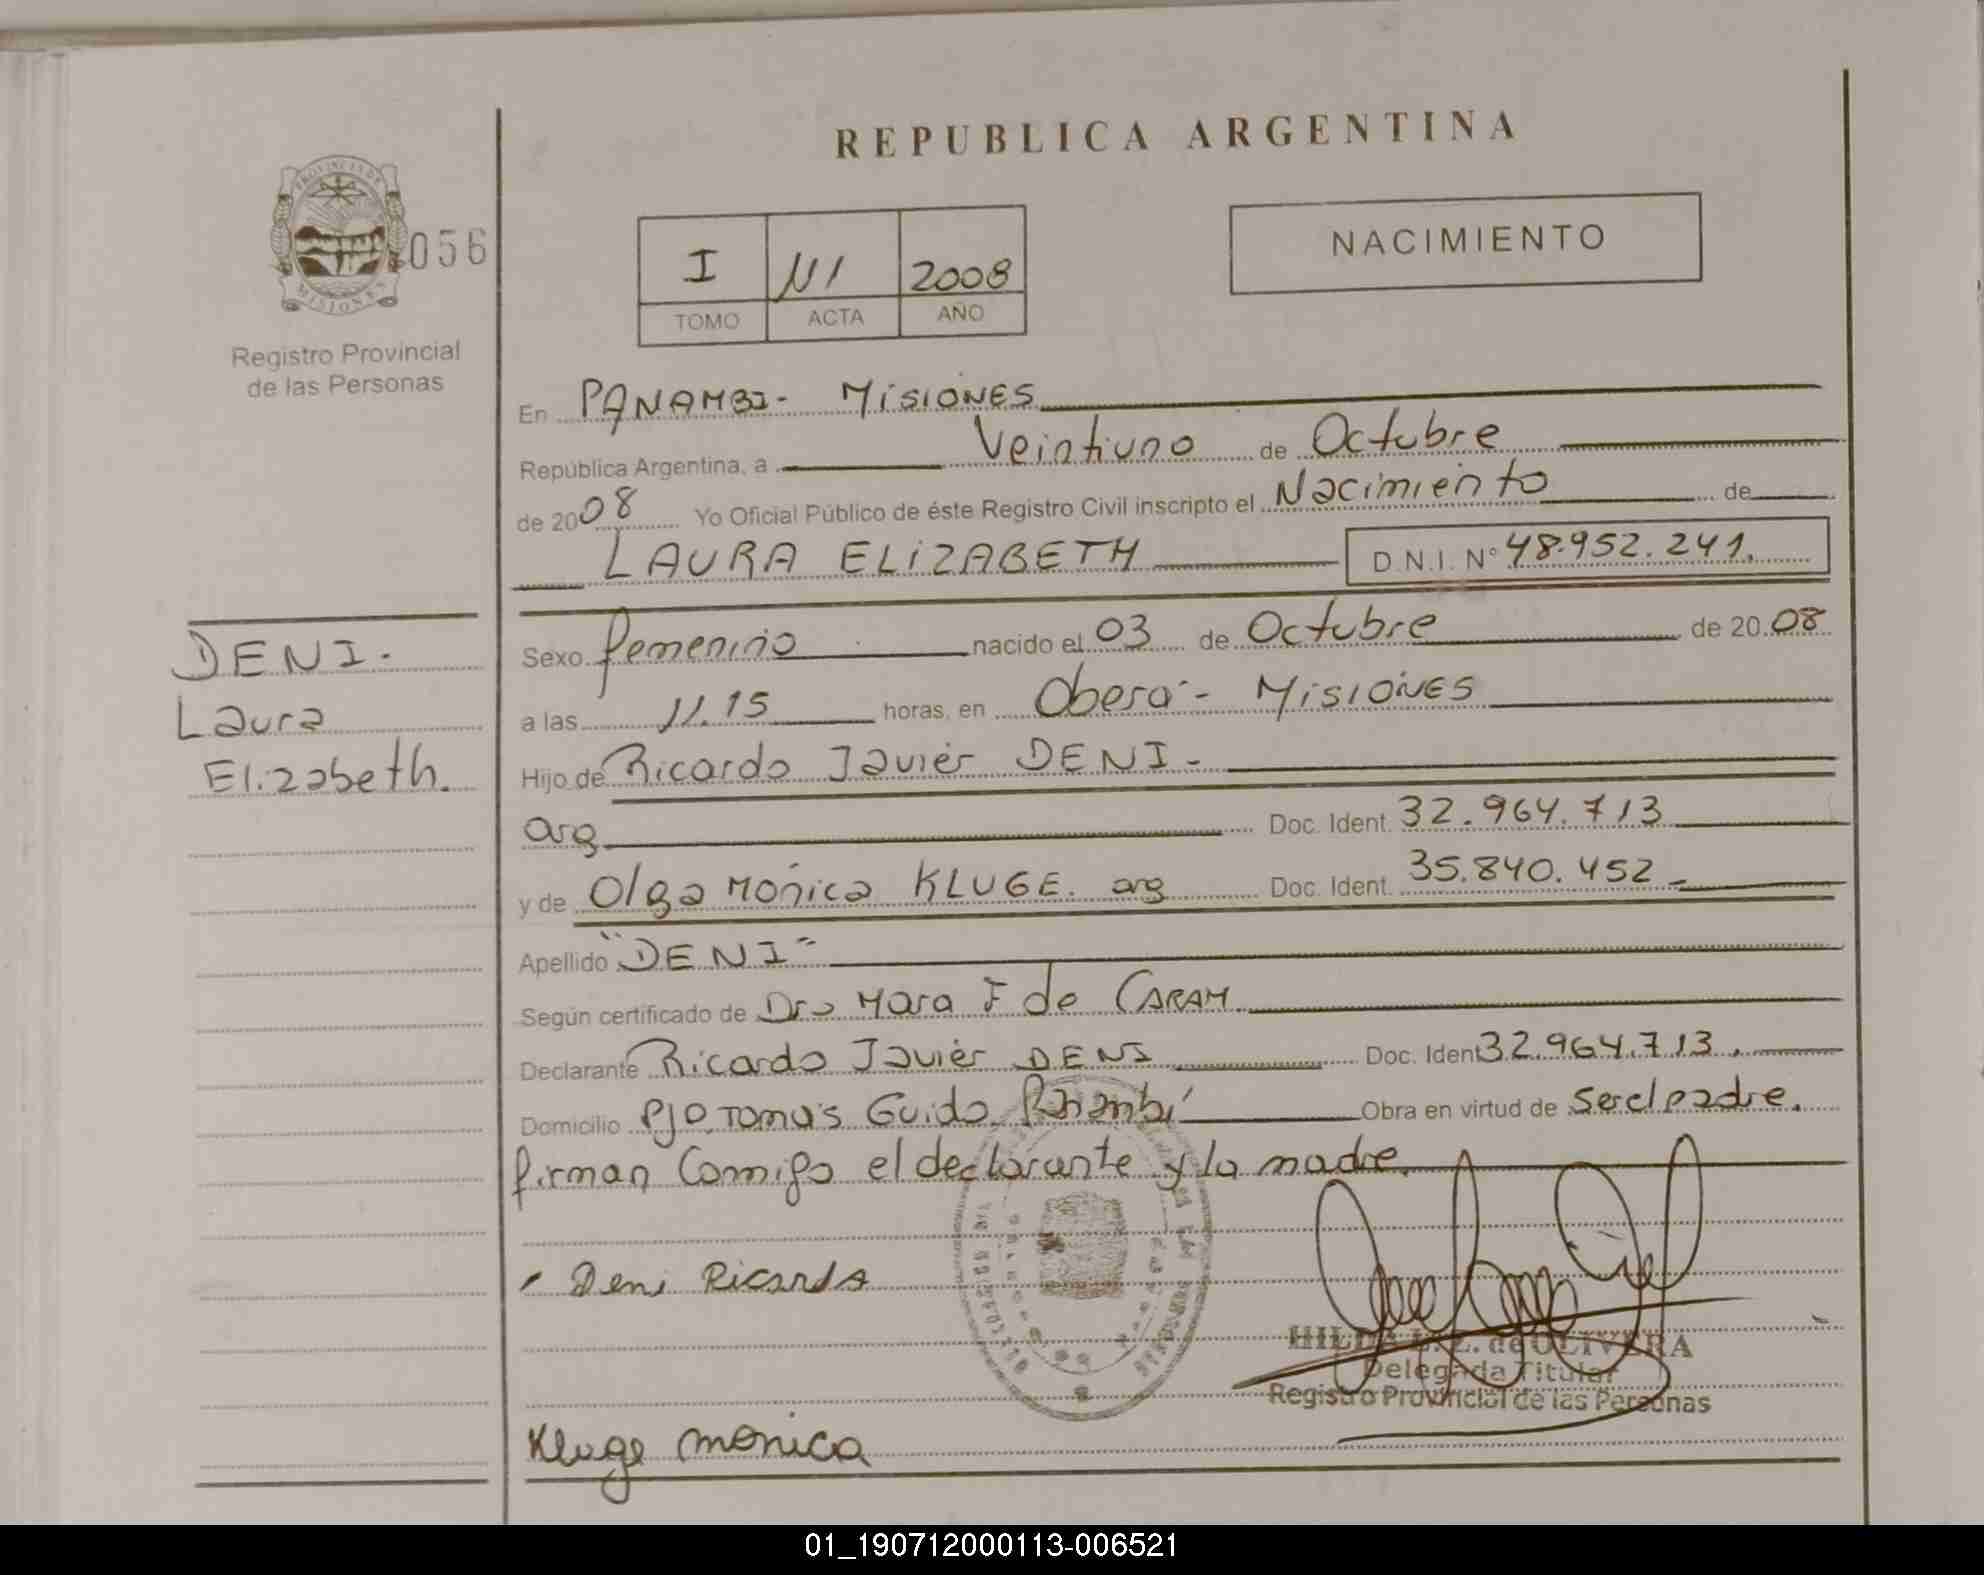 REPUBLICA ARGENTINA
PROVINCIA DE
MISIONES
056
Registro Provincial
de las Personas
I 111 2008
TOMO ACTA AÑO
NACIMIENTO
En PANAMBI- MISIONES
República Argentina, a Veintiuno de Octubre
de 2008 Yo Oficial Público de éste Registro Civil inscripto el Nacimiento de
LAURA ELIZABETH D.N.I. Nº 48.952.241.
DENI.
Laura
Elizabeth.
Sexo femenino nacido el 03 de Octubre de 2008
a las 11.15 horas, en Oberá- MISIONES
Hijo de Ricardo Javier DENI-
arg Doc. Ident. 32.964.713
y de Olga Mónica KLUGE. arg Doc. Ident. 35.840.452
Apellido "DENI"
Según certificado de Dra Mara F de CARAM
Declarante Ricardo Javier DENI Doc. Ident 32.964.713.
Domicilio Pje. Tomás Guido. Panambí Obra en virtud de ser el padre.
firman Conmigo el declarante y la madre.
Deni Ricardo
HILDA L. Z. de OLIVERA
Delegada Titular
Registro Provincial de las Personas
Kluge monica
01_190712000113-006521